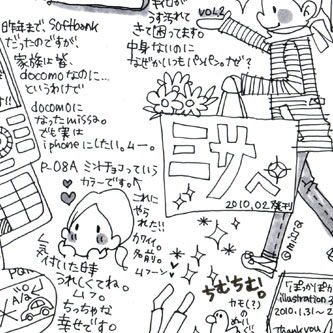 昨年まで、Softbank
だったのですが、
家族は皆、
docomoなのに…
というわけで
docomoに
なったmissa。
でも実は
iphoneにしたい。ムー。
P-08A ミントチョコっていう
カラーです。
これに
やら
れた!!
カワイイ
名前!
ムフーン
気付いた時
うれしくてね。
ムフ。
ちっちゃな
幸せです。
vol.2
うす汚れて
きて困ってます。
中身ないのに
なぜかいつもパンパン。なぜ?
ミサペ
2010.02発刊
©missa
ちむちむ。
カモ(?)の
ぬいぐ
「ぽかぽか
illustration
2010.1.31〜
Thank you